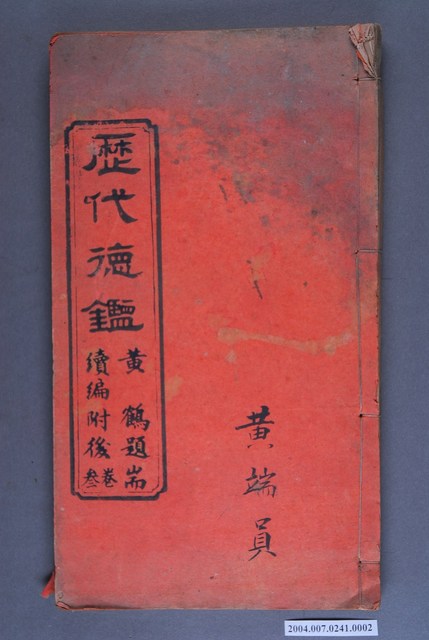 歷代德鑑
黃鶴題耑
續編附後
卷叄
黄端員
2004.007.0241.0002